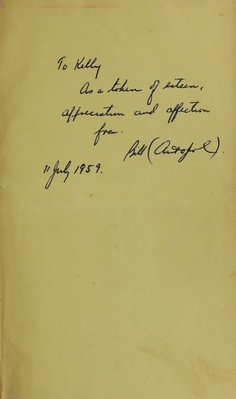 To Kelly
As a token of esteem,
appreciation and affection
from.
Bill (Antopol).
11 July 1959.